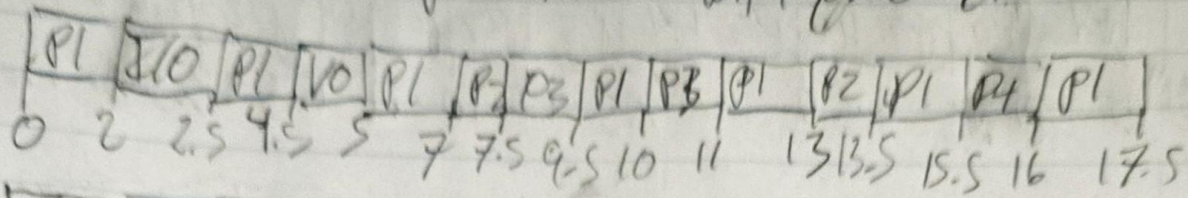 P1 I/O P1 I/O P1 P2 P3 P1 P3 P1 P2 P1 P4 P1
0 2 2.5 4.5 5 7 7.5 9.5 10 11 13 13.5 15.5 16 17.5